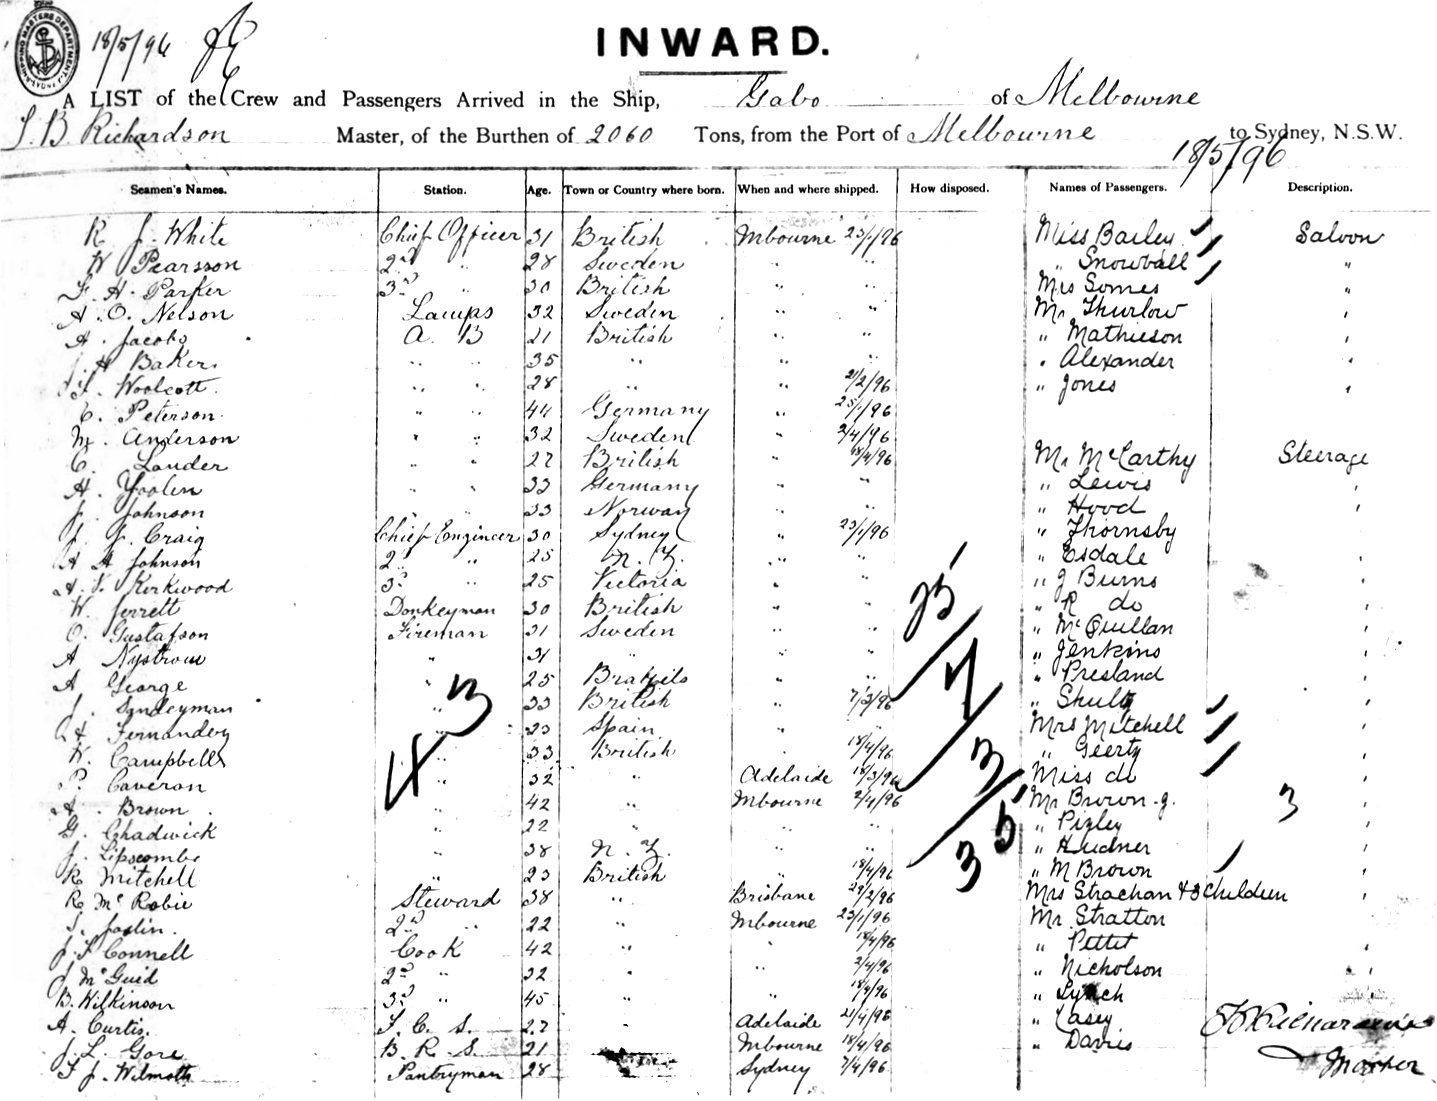 SHIPPING MASTERS DEPARTMENT SYDNEY
18/5/96
INWARD.
A LIST of the Crew and Passengers Arrived in the Ship, Gabo of Melbourne
Richardson Master, of the Burthen of 2060 Tons, from the Port of Melbourne to Sydney, N.S.W.
18/5/96
Seamen's Names. Station. Age. Town or Country where born. When and where shipped. How disposed. Names of Passengers. Description.
R J. White Chief Officer 31 British Mbourne 23/1/96 Miss Bailey Saloon
W Pearsson 2nd " 28 Sweden " " " Snowball "
F. H. Parker 3rd " 30 British " " Mrs Somes "
A. O. Nelson Lamps 32 Sweden " " Mr Thurlow "
A. Jacobs A. B 21 British " " " Mathieson "
J. H Baker " " 35 " " " " Alexander "
Woolcott " " 28 " " 21/2/96 " Jones "
C. Peterson " " 44 Germany " 25/1/96
M. Anderson " " 32 Sweden " 2/4/96
C. Lander " " 27 British " 18/4/96 Mr McCarthy Steerage
H. " " 33 Germany " " " Lewis "
J. Johnson " " 33 Norway " " " Hood
J. J. Craig Chief Engineer 30 Sydney " 23/1/96 " Thornsby "
A H Johnson 2nd " 25 N. Z. " " " Esdale "
Kirkwood 3rd " 25 Victoria " " " J Burns "
W. Jerrett Donkeyman 30 British " " " R do "
O. Gustafson Fireman 31 Sweden " " " McQuillan "
A Nystrom " 31 " " " " Jenkins "
A. George " 25 " " " Presland "
J. Sandeyman " 33 British " 7/3/96 " Shultz "
Fernandez " 23 Spain " " Mrs Mitchell "
W. Campbell " 33 British " 18/4/96 " Geerty "
P. Caveran " 32 " Adelaide 18/3/96 Miss do "
A. Brown " 42 " Mbourne 2/4/96 Mr Brown "
G. Chadwick " 22 " " " " Pigley "
J. Lipscombe " 38 N. Z. " " " Hudner "
R. Mitchell " 23 British " 18/4/96 " M Brown "
R. McRobie Steward 38 " Brisbane 29/2/96 Mrs Strachan & 3 Children
Joslin. 2nd " 22 " Mbourne 23/1/96 Mr. Stratton
J. F Connell Cook 42 " " 18/4/96 " Pettit "
J McGuid 2nd " 32 " " 2/4/96 " Nicholson "
B. Wilkinson 3rd " 45 " " 18/4/96 " Lynch "
A. Curtis. F. C. S. 27 " Adelaide 21/4/96 " Casey
J. L. Gore B. R. S. 21 Mbourne 18/4/96 " Davis
F J. Wilmott Pantryman 28 Sydney 7/4/96
43
25
7
3
35
3
Richardson
Master